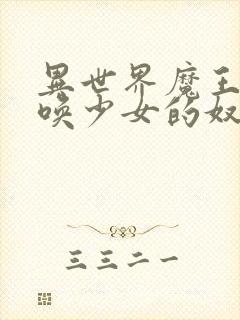 異世界魔王
喚少女的奴
三三二一